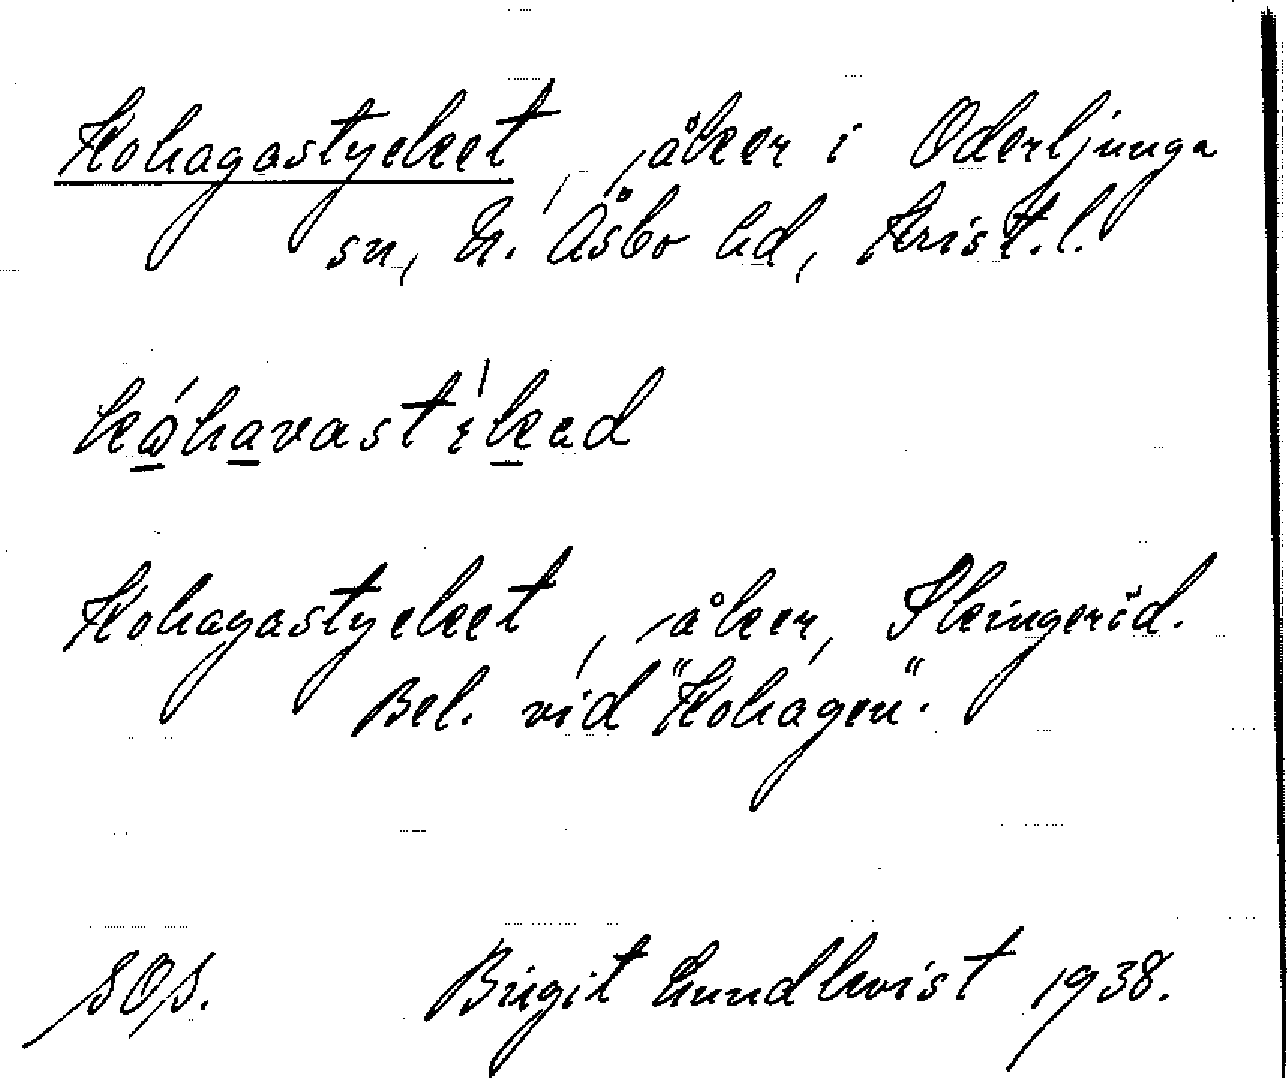 Kohagastycket, åker i Oderljunga
sn, N. Åsbo hd, Krist. l.
Kohagastycket, åker, Skingeröd.
Bel. vid "Kohagen".
SOS. Birgit Lundkvist 1938.